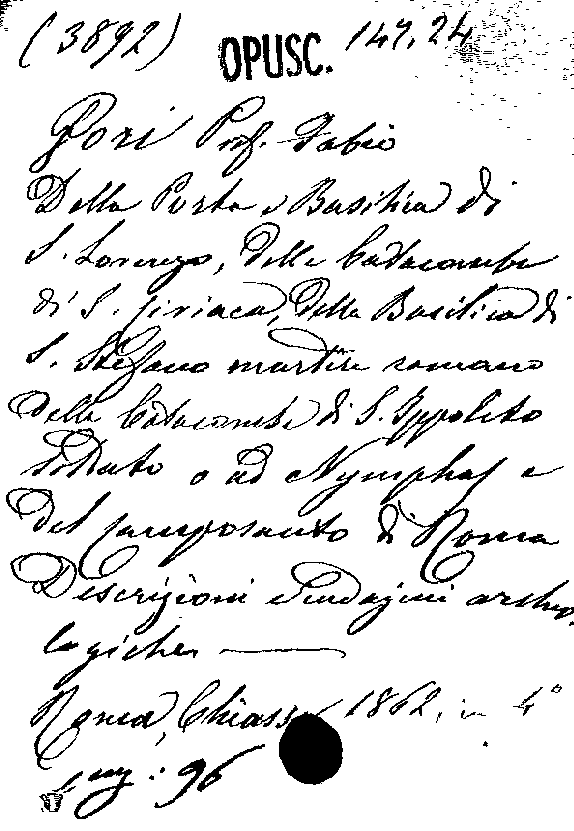 (3892) OPUSC. 147.24
Gori Prof. Fabio
Della Porta e Basilica di
S. Lorenzo, delle Catacombe
di S. Ciriaca, della Basilica di
S. Stefano martire romano
delle Catacombe di S. Ippolito
o ad Nymphas e
del camposanto di Roma
Descrizioni e indagini archeo
logiche
Roma, Chiassi 1862, in 4°
pag: 96